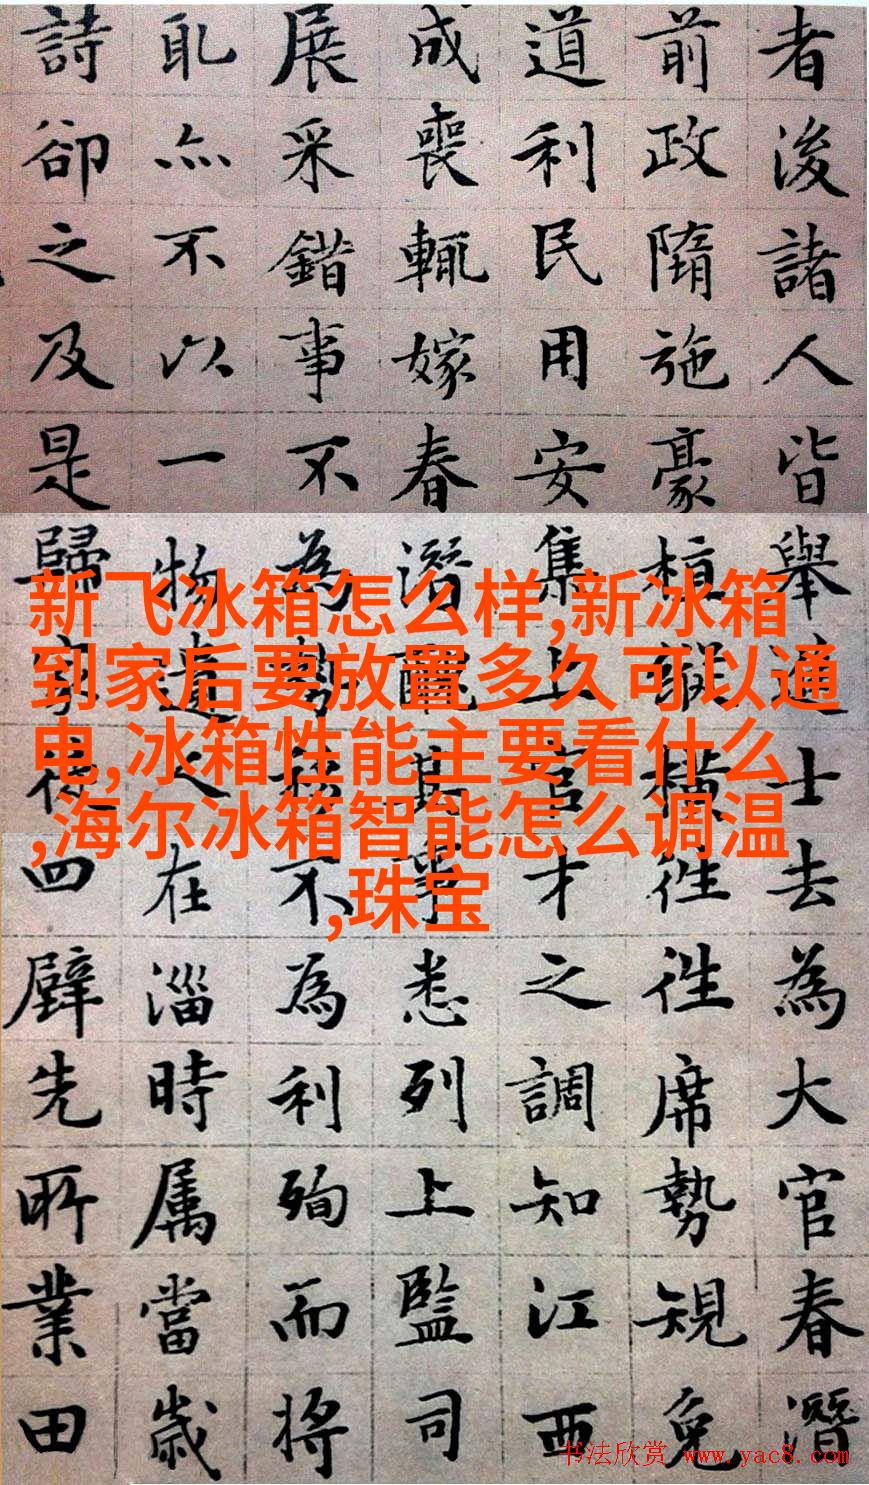 者後諸人皆舉通士去為大官春潛
前政隋施豪縱橫徃徃席勢規免
道利民用安集上官才之調知江西
成喪輒嫁春潛其事悉列上監司
展采錯事不為勢移不為利殉而將
耴亦不以一物遺人在淄時属當歲
詩卻之及是歸徒四壁先所業田
新飞冰箱怎么样,新冰箱
到家后要放置多久可以通
电,冰箱性能主要看什么
,海尔冰箱智能怎么调温
,珠宝
书法欣赏 www.yac8.com